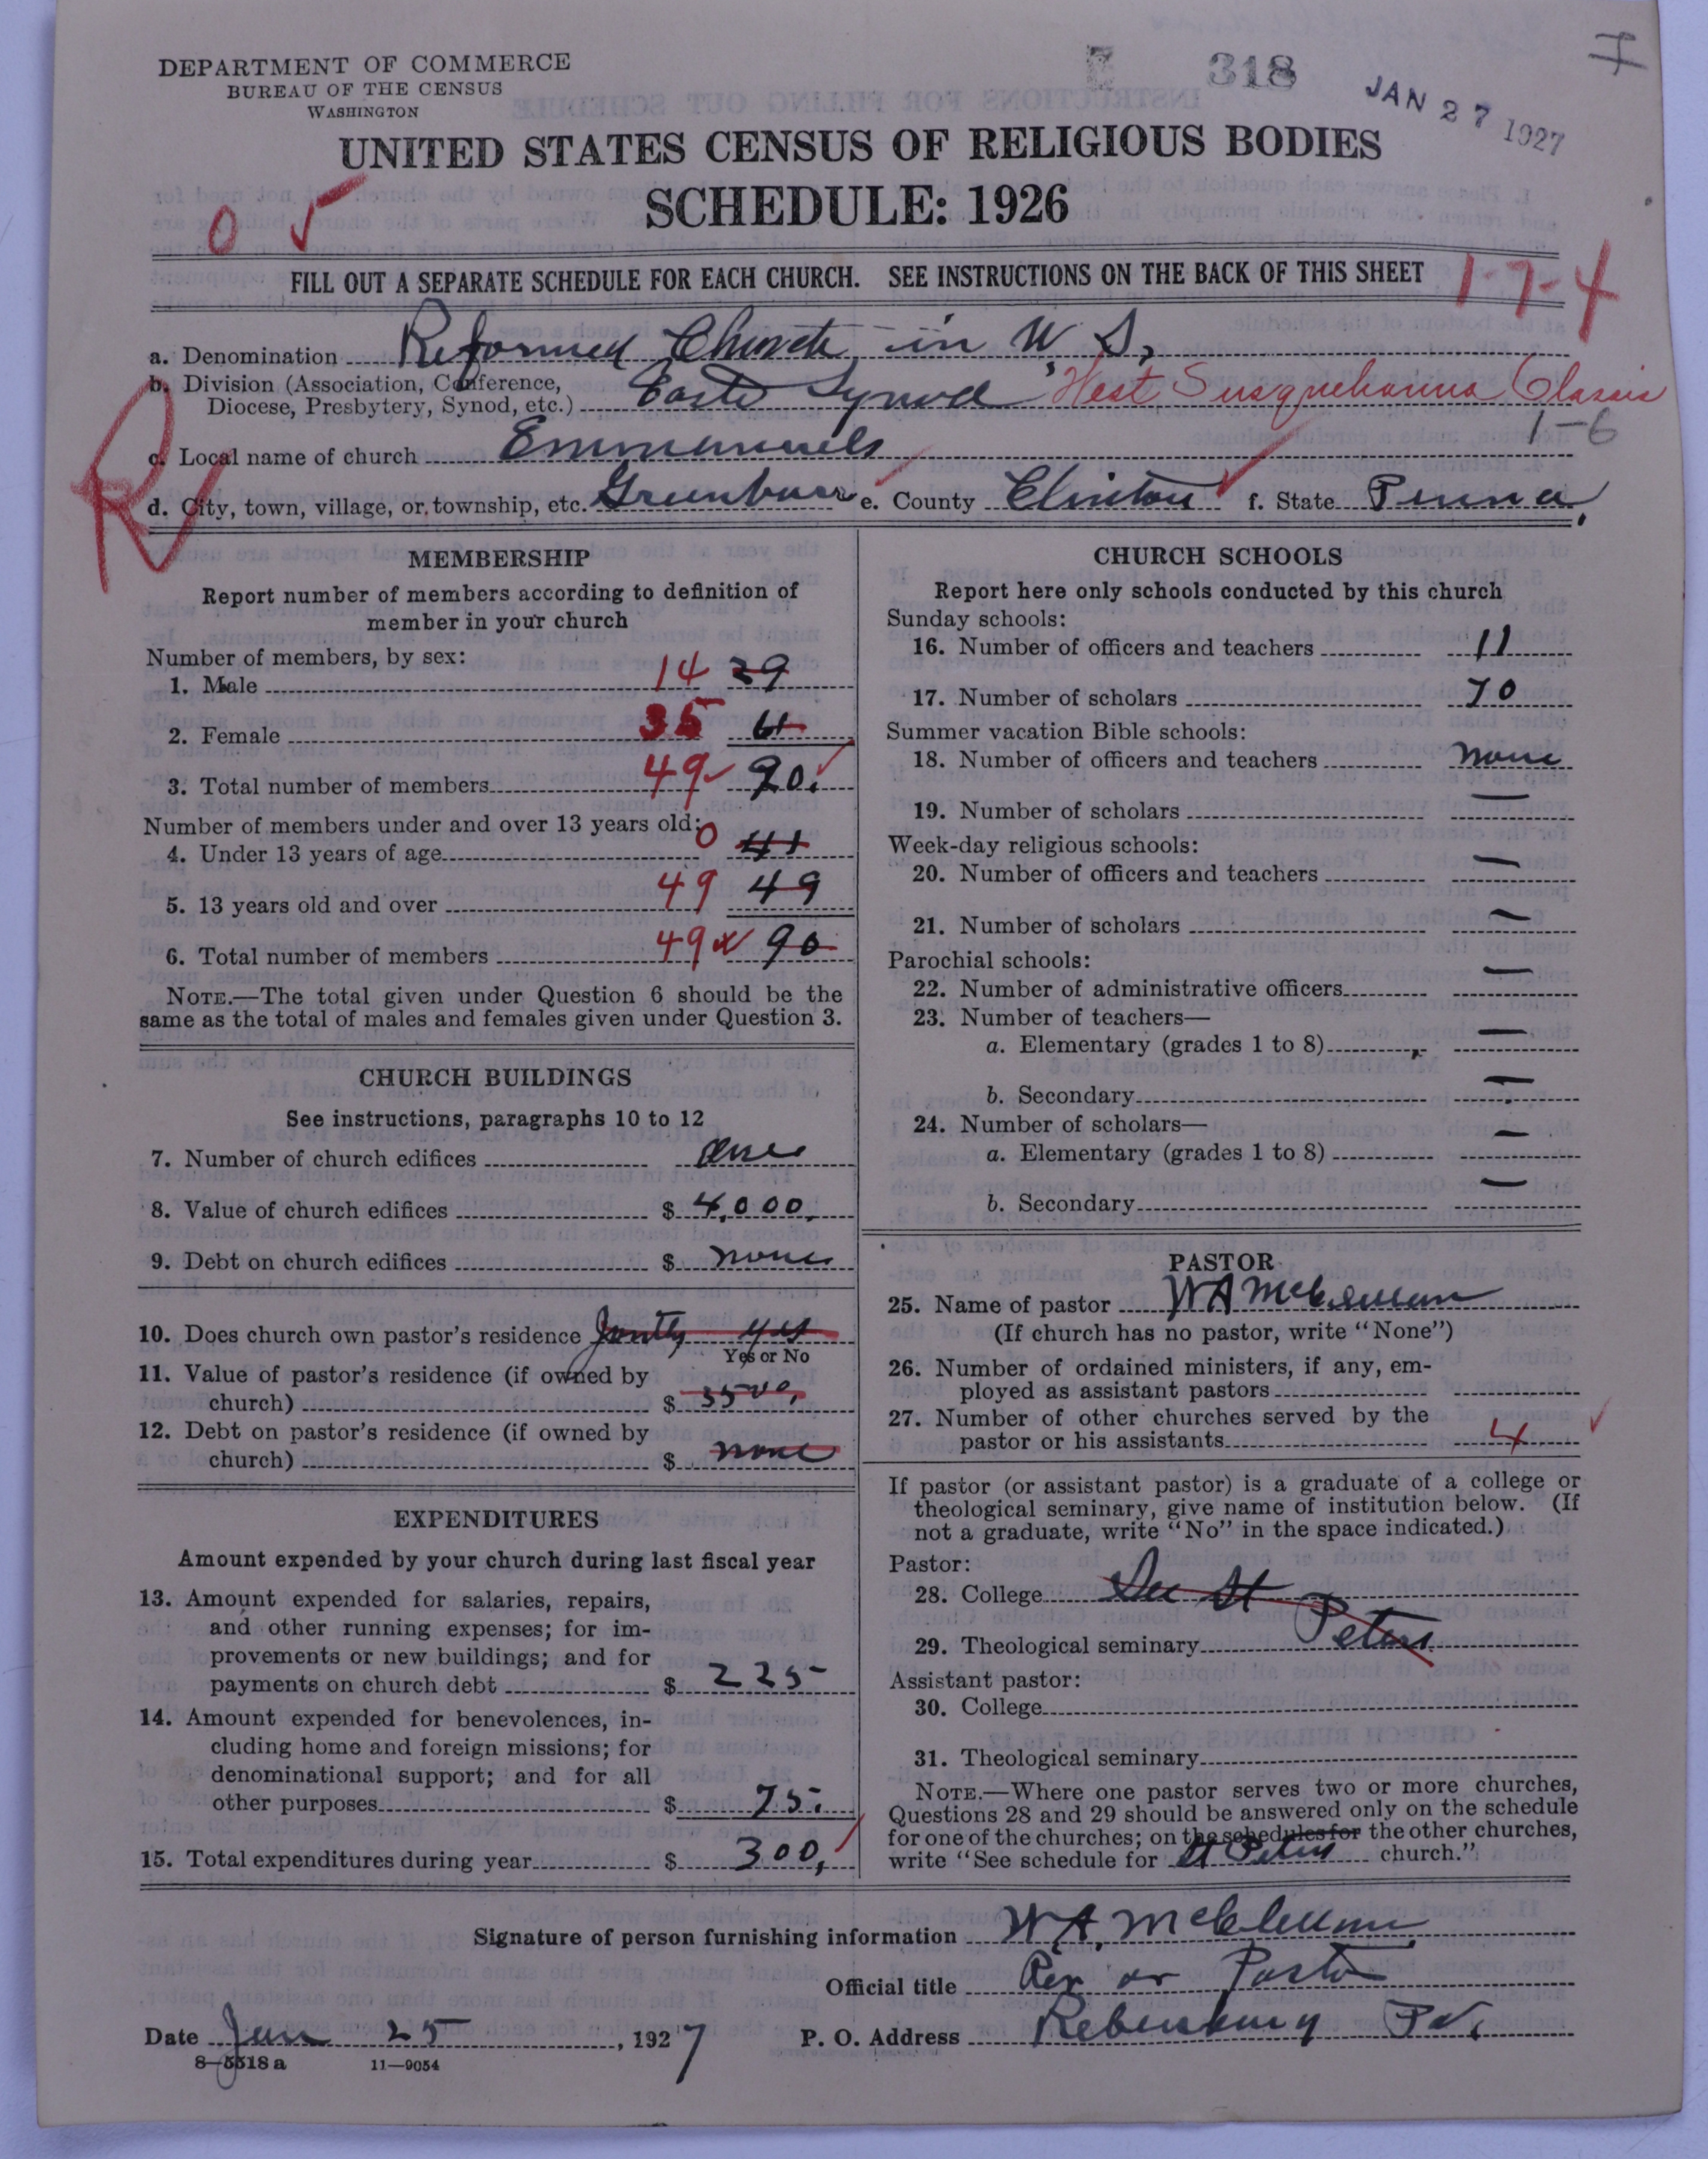 DEPARTMENT OF COMMERCE
BUREAU OF THE CENSUS
WASHINGTON
318
JAN 27 1927
UNITED STATES CENSUS OF RELIGIOUS BODIES
SCHEDULE: 1926
0
FILL OUT A SEPARATE SCHEDULE FOR EACH CHURCH. SEE INSTRUCTIONS ON THE BACK OF THIS SHEET
1-7-4
a. Denomination Reformed Church in U.S.
b. Division (Association, Conference,
Diocese, Presbytery, Synod, etc.) East Synod West Susquehanna Classis
1-6
R
c. Local name of church Emmanuels
d. City, town, village, or township, etc. Greenburr e. County Clinton f. State Penna.
MEMBERSHIP
Report number of members according to definition of
member in your church
Number of members, by sex:
1. Male 14 29
2. Female 35 61
3. Total number of members 49 90.
Number of members under and over 13 years old:
4. Under 13 years of age 0 41
5. 13 years old and over 49 49
6. Total number of members 49 90
NOTE.—The total given under Question 6 should be the
same as the total of males and females given under Question 3.
CHURCH BUILDINGS
See instructions, paragraphs 10 to 12
7. Number of church edifices One
8. Value of church edifices $ 4,000.
9. Debt on church edifices $ none
10. Does church own pastor's residence Jointly yes
Yes or No
11. Value of pastor's residence (if owned by
church) $ 3500.
12. Debt on pastor's residence (if owned by
church) $ none
EXPENDITURES
Amount expended by your church during last fiscal year
13. Amount expended for salaries, repairs,
and other running expenses; for im-
provements or new buildings; and for
payments on church debt $ 225
14. Amount expended for benevolences, in-
cluding home and foreign missions; for
denominational support; and for all
other purposes $ 75.
15. Total expenditures during year $ 300.
CHURCH SCHOOLS
Report here only schools conducted by this church
Sunday schools:
16. Number of officers and teachers 11
17. Number of scholars 70
Summer vacation Bible schools:
18. Number of officers and teachers none
19. Number of scholars —
Week-day religious schools:
20. Number of officers and teachers —
21. Number of scholars —
Parochial schools:
22. Number of administrative officers —
23. Number of teachers—
a. Elementary (grades 1 to 8) —
b. Secondary —
24. Number of scholars—
a. Elementary (grades 1 to 8) —
b. Secondary —
PASTOR
25. Name of pastor W A McClellan
(If church has no pastor, write "None")
26. Number of ordained ministers, if any, em-
ployed as assistant pastors
27. Number of other churches served by the
pastor or his assistants 4
If pastor (or assistant pastor) is a graduate of a college or
theological seminary, give name of institution below. (If
not a graduate, write "No" in the space indicated.)
Pastor:
28. College See St
29. Theological seminary Peters
Assistant pastor:
30. College
31. Theological seminary
NOTE.—Where one pastor serves two or more churches,
Questions 28 and 29 should be answered only on the schedule
for one of the churches; on the schedules for the other churches,
write "See schedule for St Peters church."
Signature of person furnishing information W. A. McClellan
Official title Rev or Pastor
Date Jan 25, 1927 P. O. Address Rebersburg Pa.
8—5318 a 11—9054